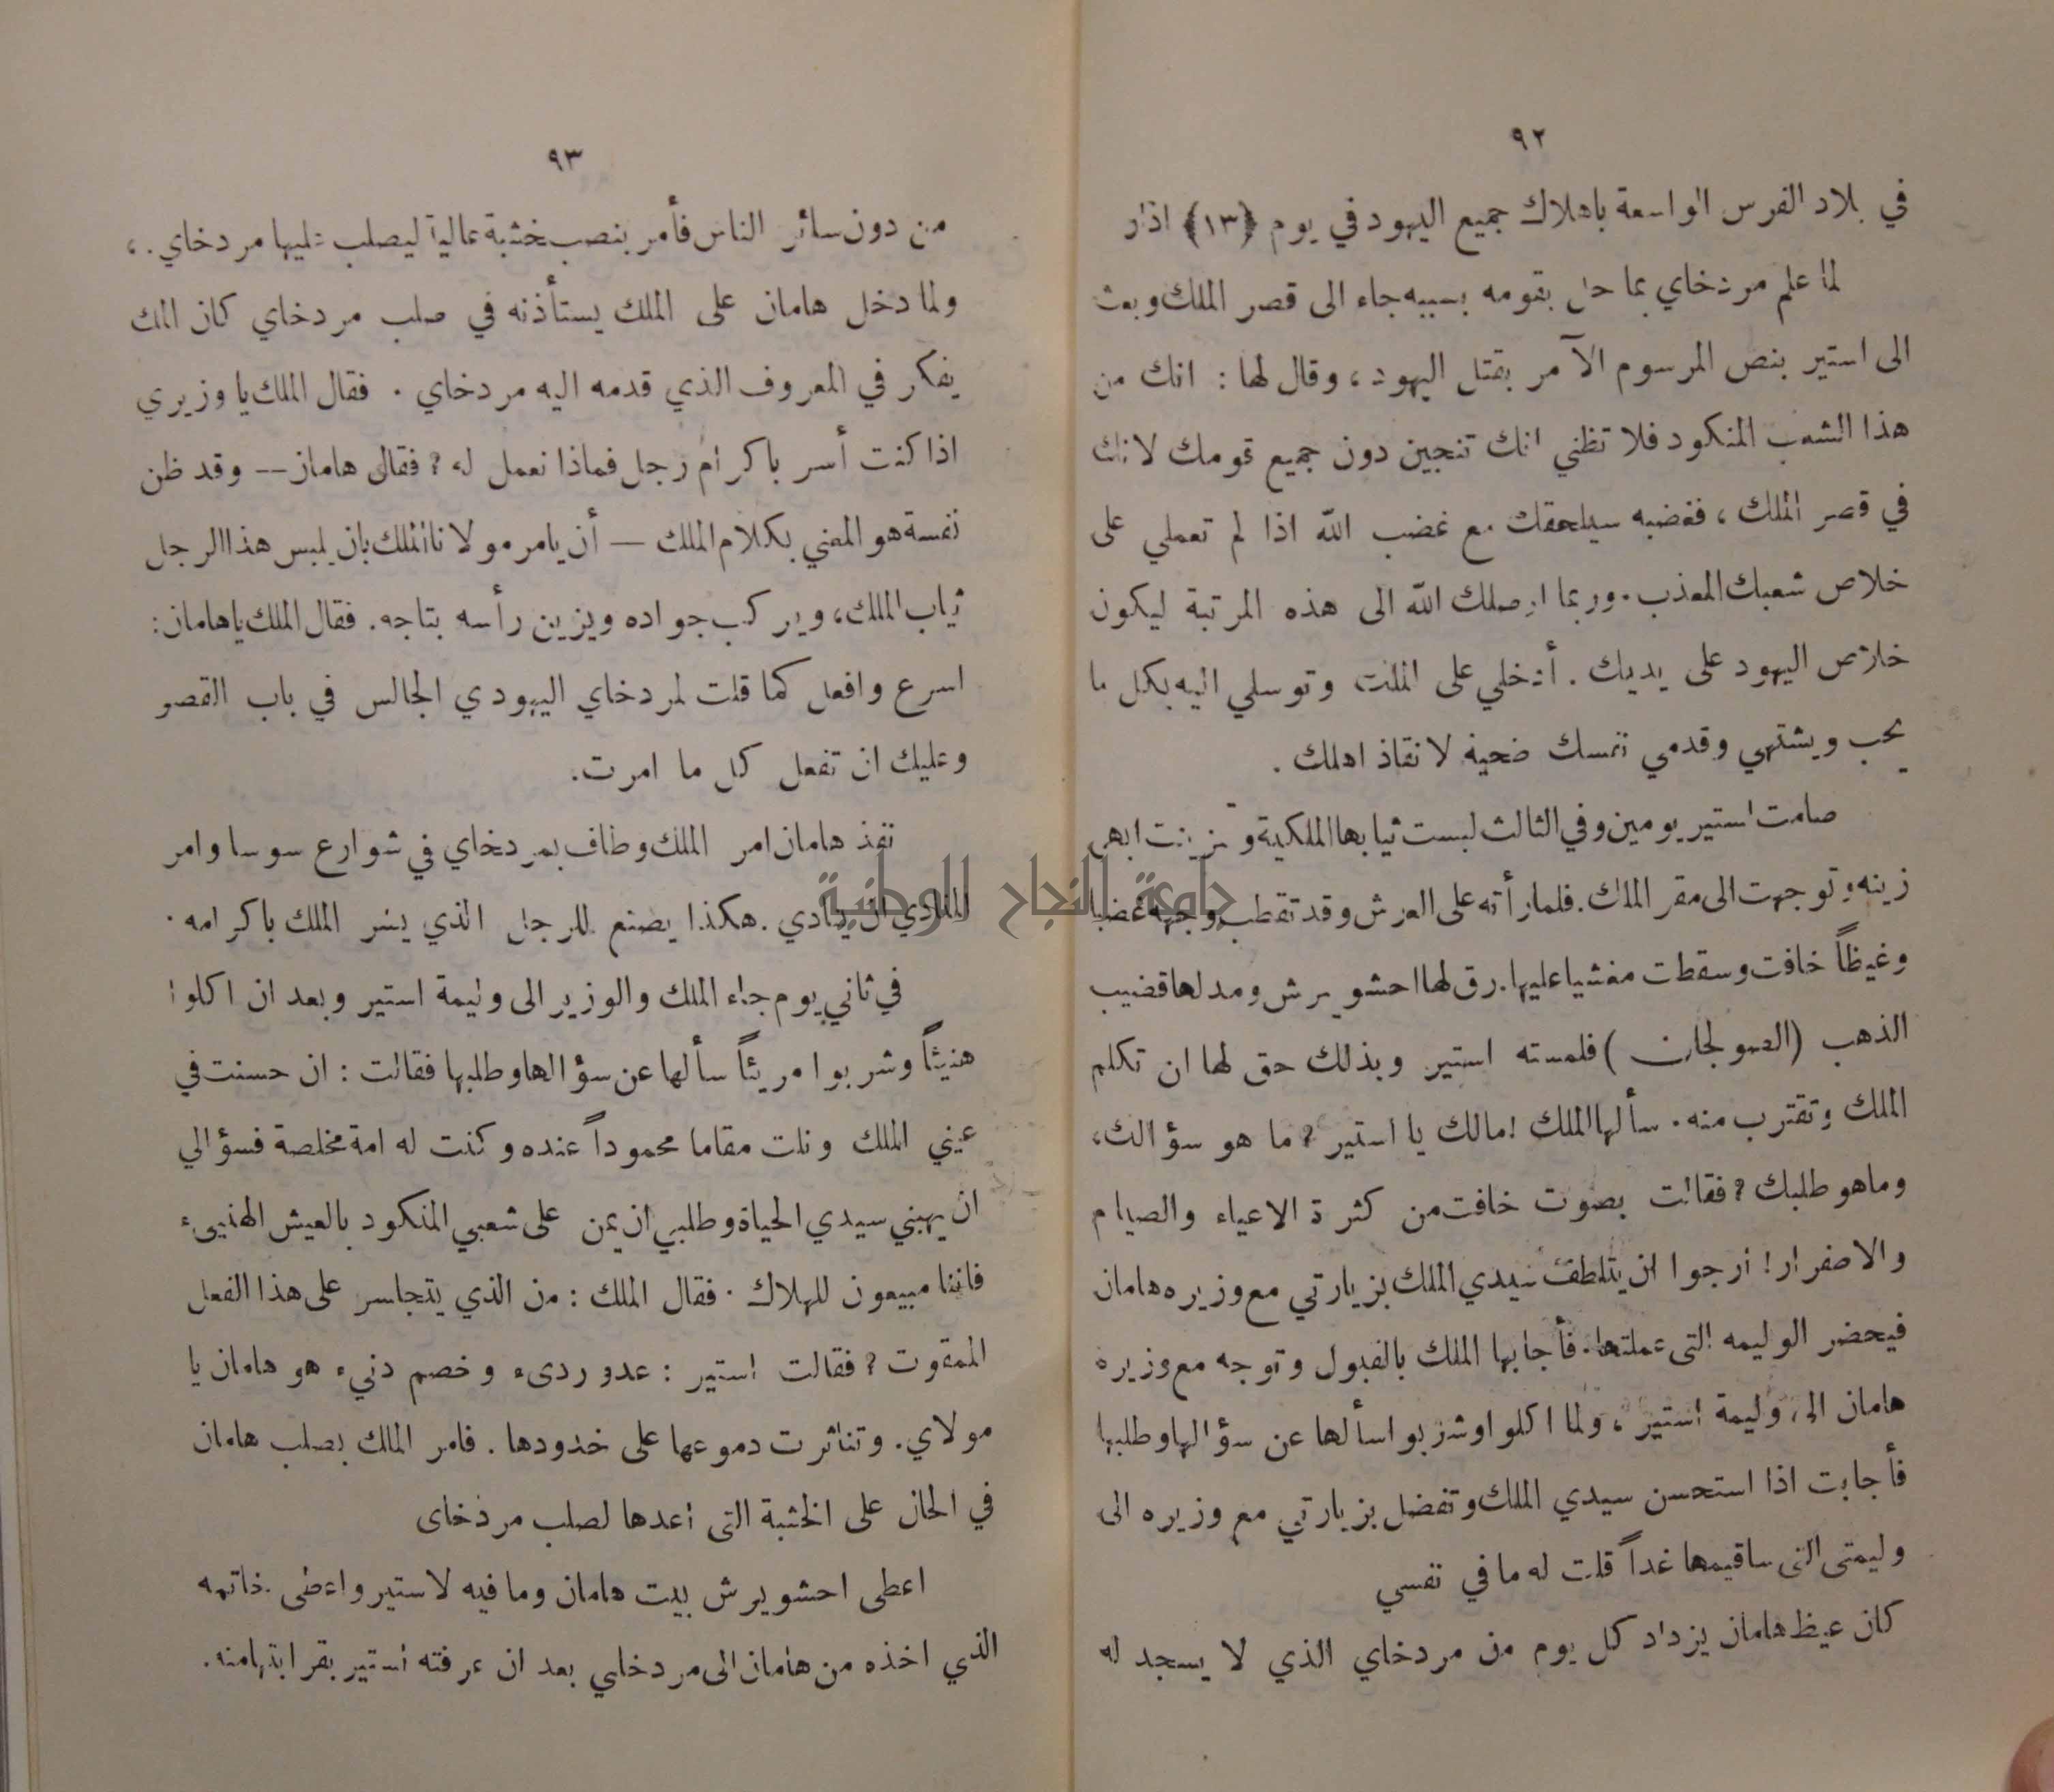 ٩٢
في بلاد الفرس الواسعة باهلاك جميع اليهود في يوم ﴿١٣﴾ اذار
لما علم مردخاي بما حل بقومه بسببه جاء الى قصر الملك وبعث
الى استير بنص المرسوم الآمر بقتل اليهود، وقال لها : انك من
هذا الشعب المنكود فلا تظني انك تنجين دون جميع قومك لانك
في قصر الملك ، فغضبه سيلحقك مع غضب الله اذا لم تعملي على
خلاص شعبك المعذب. وربما ارسلك الله الى هذه المرتبة ليكون
خلاص اليهود على يديك . أدخلي على الملك وتوسلي اليه بكل ما
يحب ويشتهي وقدمي نفسك ضحية لانقاذ اهلك .
صامت استير يومين وفي الثالث لبست ثيابها الملكية وتزينت ابهى
زينه وتوجهت الى مقر الملك. فلما رأته على العرش وقد تقطب وجهه غضبا
وغيظاً خافت وسقطت مغشيا عليها. رق لها احشويرش ومد لها قضيب
الذهب (الصولجان) فلمسته استير وبذلك حق لها ان تكلم
الملك وتقترب منه. سألها الملك ! مالك يا استير ? ما هو سؤالك،
وماهو طلبك ? فقالت بصوت خافت من كثرة الاعياء والصيام
والاصفرار! ارجوا ان يتلطف سيدي الملك بزيارتي مع وزيره هامان
فيحضر الوليمه التى عملتها. فأجابها الملك بالقبول وتوجه مع وزيره
هامان الى وليمة استير ، ولما اكلوا وشربوا سألها عن سؤالها وطلبها
فأجابت اذا استحسن سيدي الملك وتفضل بزيارتي مع وزيره الى
وليمتى التى ساقيمها غداً قلت له ما في نفسي
كان غيظ هامان يزداد كل يوم من مردخاي الذي لا يسجد له
٩٣
من دون سائر الناس فأمر بنصب خشبة عالية ليصلب عليها مردخاي .،
ولما دخل هامان على الملك يستأذنه في صلب مردخاي كان الملك
يفكر في المعروف الذي قدمه اليه مردخاي . فقال الملك يا وزيري
اذا كنت أسر باكرام رجل فماذا نعمل له ? فقال هامان -- وقد ظن
نفسة هو المعني بكلام الملك — أن يامر مولانا الملك بان يلبس هذا الرجل
ثياب الملك، ويركب جواده ويزين رأسه بتاجه. فقال الملك يا هامان:
اسرع وافعل كما قلت لمردخاي اليهودي الجالس في باب القصر
وعليك ان تفعل كل ما امرت.
نفذ هامان امر الملك وطاف بمردخاي في شوارع سوسا وامر
المنادي ان ينادي . هكذا يصنع للرجل الذي يسر الملك باكرامه .
في ثاني يوم جاء الملك والوزير الى وليمة استير وبعد ان اكلوا
هنيئاً وشربوا مريئاً سألها عن سؤالها وطلبها فقالت : ان حسنت في
عيني الملك ونلت مقاما محموداً عنده وكنت له امة مخلصة فسؤالي
ان يهبني سيدي الحياة وطلبي ان يمن على شعبي المنكود بالعيش الهنيىء
فاننا مبيعون للهلاك . فقال الملك : من الذي يتجاسر على هذا الفعل
الممقوت ? فقالت استير : عدو ردىء وخصم دنيء هو هامان يا
مولاي. وتناثرت دموعها على خدودها . فامر الملك بصلب هامان
في الحال على الخشبة التى اعدها لصلب مردخاى
اعطى احشويرش بيت هامان وما فيه لاستير واعطى خاتمه
الذي اخذه من هامان الى مردخاي بعد ان عرفته استير بقرابتها منه.
جامعة النجاح الوطنية